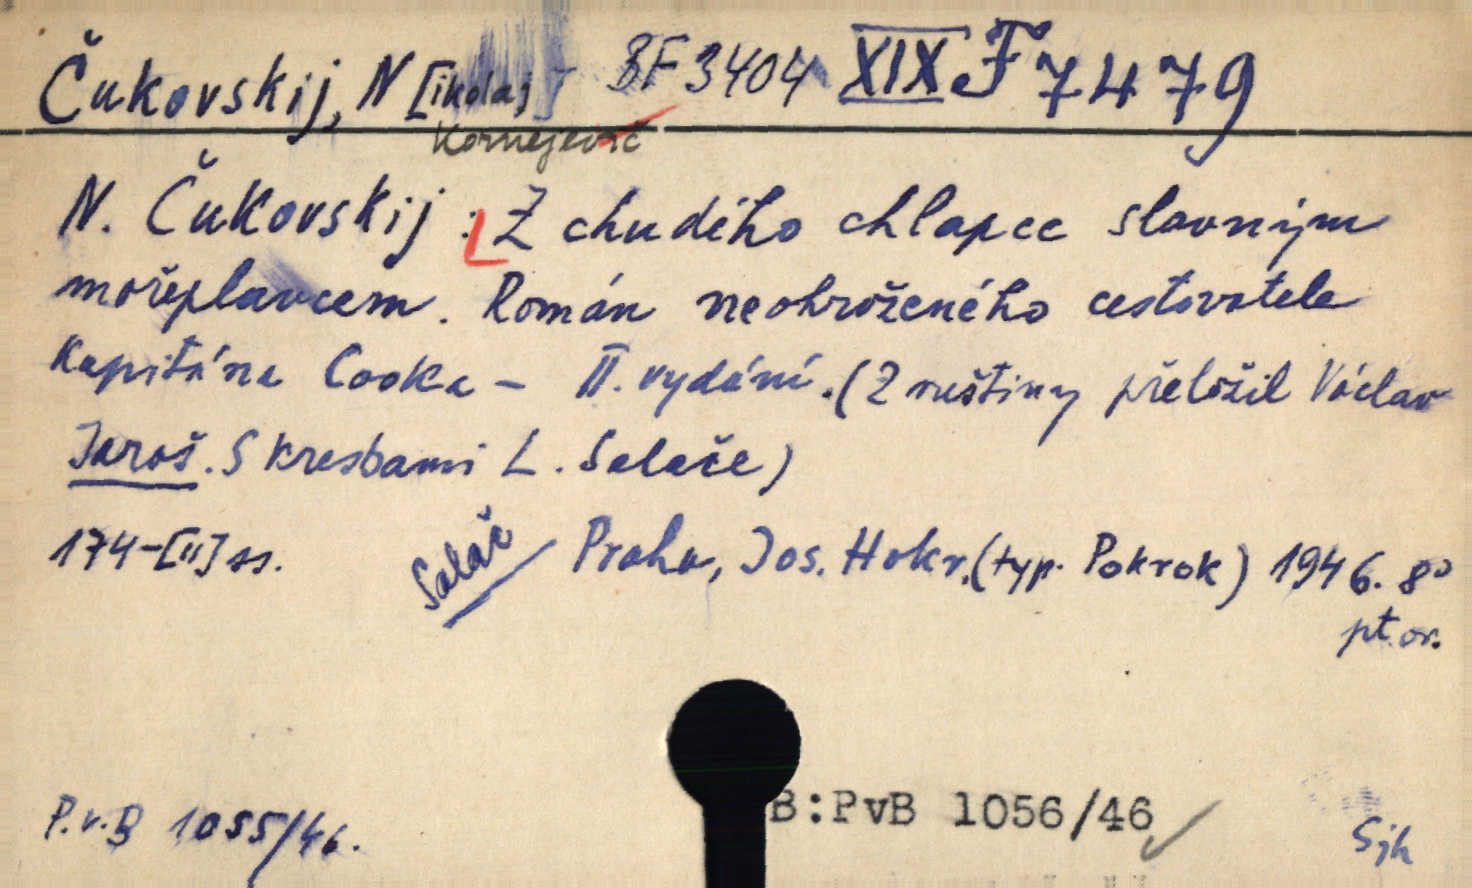 Čukovskij, N[ikolaj] BF 3404 XIX F 7479
Kornejevič
N. Čukovskij: Z chudého chlapce slavným
mořeplavcem. Román neohroženého cestovatele
kapitána Cooka – II. vydání. (Z ruštiny přeložil Václav
Jaroš. S kresbami L. Salače)
174-[II] ss. Salač Praha, Jos. Hokr, (typ. Pokrok) 1946. 8°
pt. or.
P.v.B 1055/46. B:PvB 1056/46
Sjh